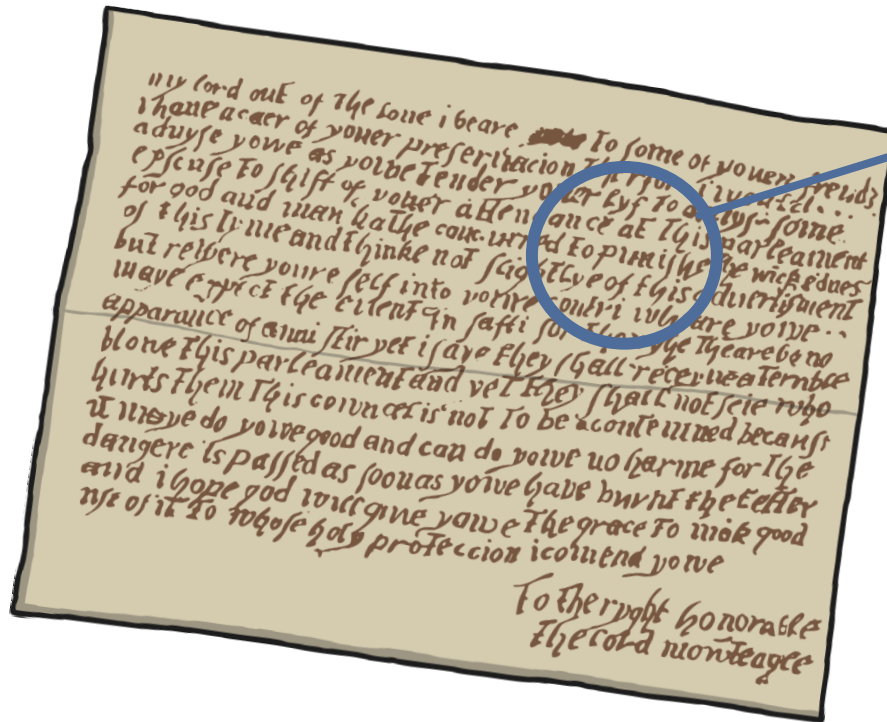 my lord out of the loue i beare To some of youer frends
i haue a caer of youer preseruacion
aduyse yowe as yowe Tender youer lyf To deuys some
epscuse To shift of youer attendance at This parleament
for god and man hathe concurred To punishe the wickednes
of this Tyme and thinke not slightlye of this aduertisment
but retyere youre self into youre contri wheare yowe
maye expect the euent in safti for Thowghe Theare be no
apparance of anni stir yet i saye they shall receyue a Terrible
blowe This parleament and yet They shall not seie who
hurts Them This councel is not To be acontemned because
it maye do yowe good and can do yowe no harme for The
dangere is passed as soon as yowe have burnt the letter
and i hope god will giue yowe The grace To mak good
use of it To whose holy proteccion i comend yowe
To the ryght honorable
The lord mowteagle